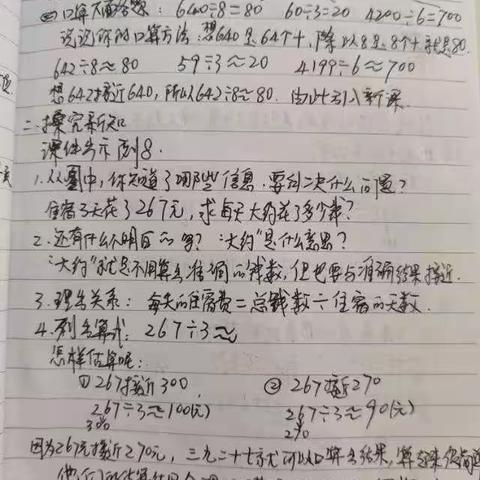 口算下面各题: 640÷8=80 60÷3=20 4200÷6=700
说说你的口算方法:想640是64个十,除以8是8个十就是80.
642÷8≈80 59÷3≈20 4199÷6≈700
想642接近640,所以642÷8≈80. 由此引入新课.
二.探究新知
课件出示例8.
1.从图中,你知道了哪些信息.要解决什么问题?
住宿3天花了267元,求每天大约花了多少钱?
2.还有什么不明白的吗?"大约"是什么意思?
"大约"就是不用算出准确的钱数,但也要与准确结果接近.
3.理出关系: 每天的住宿费=总钱数÷住宿的天数.
4.列出算式: 267÷3≈
怎样估算呢:
①267接近300 ②267接近270
267÷3≈100(元) 267÷3≈90(元)
300 270
因为267元接近270元,三九二十七就可以口算出结果,算起来